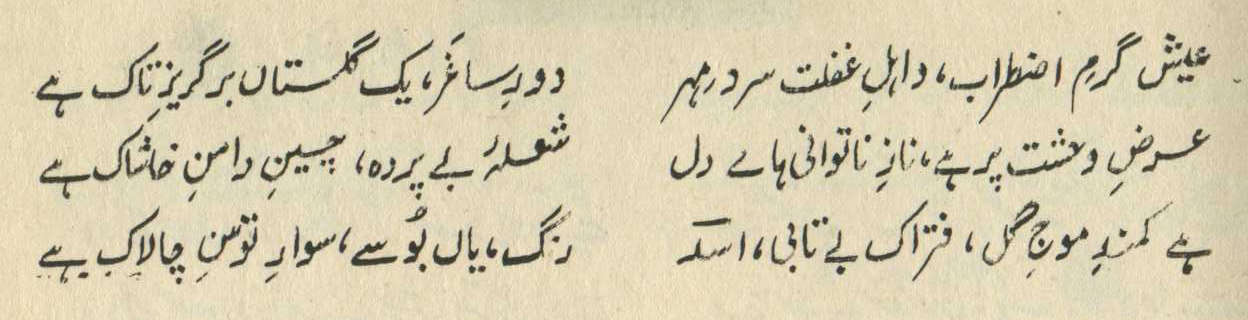 عیش گرمِ اضطراب، و اہلِ غفلت سرد مہر دورِ ساغر، یک گلستاں برگریزِ تاک ہے
عرضِ وحشت پر ہے، نازِ ناتوانی ہائے دل شعلۂ بے پردہ، چینِ دامنِ خاشاک ہے
ہے کمندِ موجِ گل، فتراکِ بے تابی، اسدؔ رنگ، یاں بُو سے، سوارِ توسنِ چالاک ہے